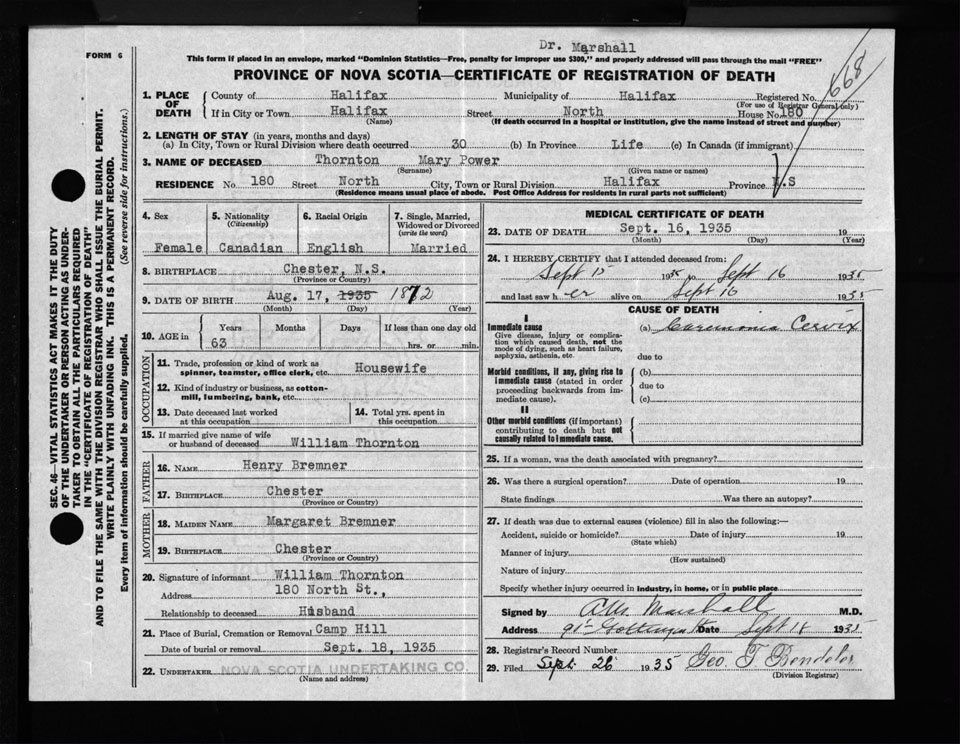 Dr. Marshall
FORM 6
This form if placed in an envelope, marked "Dominion Statistics—Free, penalty for improper use $300," and properly addressed will pass through the mail "FREE"
668
PROVINCE OF NOVA SCOTIA—CERTIFICATE OF REGISTRATION OF DEATH
1. PLACE OF DEATH
County of Halifax Municipality of Halifax Registered No.
(For use of Registrar General only)
If in City or Town Halifax Street North House No. 180
(Name) (If death occurred in a hospital or institution, give the name instead of street and number)
2. LENGTH OF STAY (in years, months and days)
(a) In City, Town or Rural Division where death occurred 30 (b) In Province Life (c) In Canada (if immigrant)
3. NAME OF DECEASED Thornton Mary Power
(Surname) (Given name or names)
RESIDENCE No. 180 Street North City, Town or Rural Division Halifax Province N.S
(Residence means usual place of abode. Post Office Address for residents in rural parts not sufficient)
4. Sex 5. Nationality 6. Racial Origin 7. Single, Married,
(Citizenship) Widowed or Divorced
(write the word)
Female Canadian English Married
8. BIRTHPLACE Chester, N.S.
(Province or Country)
9. DATE OF BIRTH Aug. 17, 1935 1872
(Month) (Day) (Year)
10. AGE in Years Months Days If less than one day old
63 hrs. or min.
OCCUPATION
11. Trade, profession or kind of work as
spinner, teamster, office clerk, etc. Housewife
12. Kind of industry or business, as cotton-
mill, lumbering, bank, etc.
13. Date deceased last worked 14. Total yrs. spent in
at this occupation this occupation
15. If married give name of wife
or husband of deceased William Thornton
FATHER
16. NAME Henry Bremner
17. BIRTHPLACE Chester
(Province or Country)
MOTHER
18. MAIDEN NAME Margaret Bremner
19. BIRTHPLACE Chester
(Province or Country)
20. Signature of informant William Thornton
Address 180 North St.,
Relationship to deceased Husband
21. Place of Burial, Cremation or Removal Camp Hill
Date of burial or removal Sept. 18, 1935
22. UNDERTAKER NOVA SCOTIA UNDERTAKING CO.
(Name and address)
MEDICAL CERTIFICATE OF DEATH
23. DATE OF DEATH Sept. 16, 1935 19
(Month) (Day) (Year)
24. I HEREBY CERTIFY that I attended deceased from:
Sept 15 1935 to Sept 16 1935
and last saw her alive on Sept 16 1935
CAUSE OF DEATH
I
Immediate cause (a) Carcinoma Cervix
Give disease, injury or complication
which caused death, not the
mode of dying, such as heart failure,
asphyxia, asthenia, etc. due to
Morbid conditions, if any, giving rise to (b)
immediate cause (stated in order due to
proceeding backwards from im-
mediate cause). (c)
II
Other morbid conditions (if important)
contributing to death but not
causally related to immediate cause.
25. If a woman, was the death associated with pregnancy?
26. Was there a surgical operation? Date of operation 19
State findings Was there an autopsy?
27. If death was due to external causes (violence) fill in also the following:—
Accident, suicide or homicide? Date of injury 19
(State which)
Manner of injury
(How sustained)
Nature of injury
Specify whether injury occurred in industry, in home, or in public place
Signed by Marshall M.D.
Address Date Sept 18 1935
28. Registrar's Record Number
29. Filed Sept. 26 1935 Geo.
(Division Registrar)
SEC. 46—VITAL STATISTICS ACT MAKES IT THE DUTY
OF THE UNDERTAKER OR PERSON ACTING AS UNDER-
TAKER TO OBTAIN ALL THE PARTICULARS REQUIRED
IN THE "CERTIFICATE OF REGISTRATION OF DEATH"
AND TO FILE THE SAME WITH THE DIVISION REGISTRAR WHO SHALL ISSUE THE BURIAL PERMIT.
WRITE PLAINLY WITH UNFADING INK. THIS IS A PERMANENT RECORD.
Every item of information should be carefully supplied. (See reverse side for instructions.)